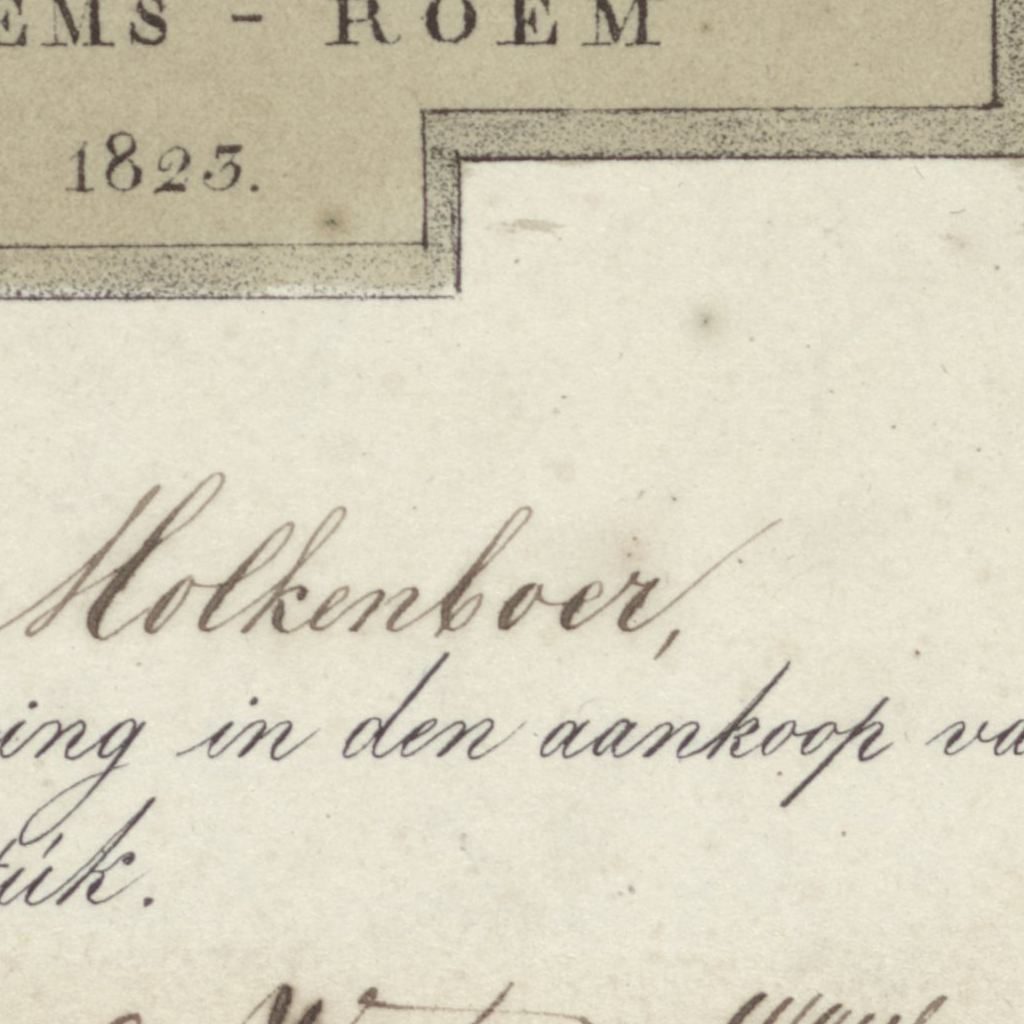 EMS - ROEM
1823.
Molkenboer,
ing in den aankoop va
úk.